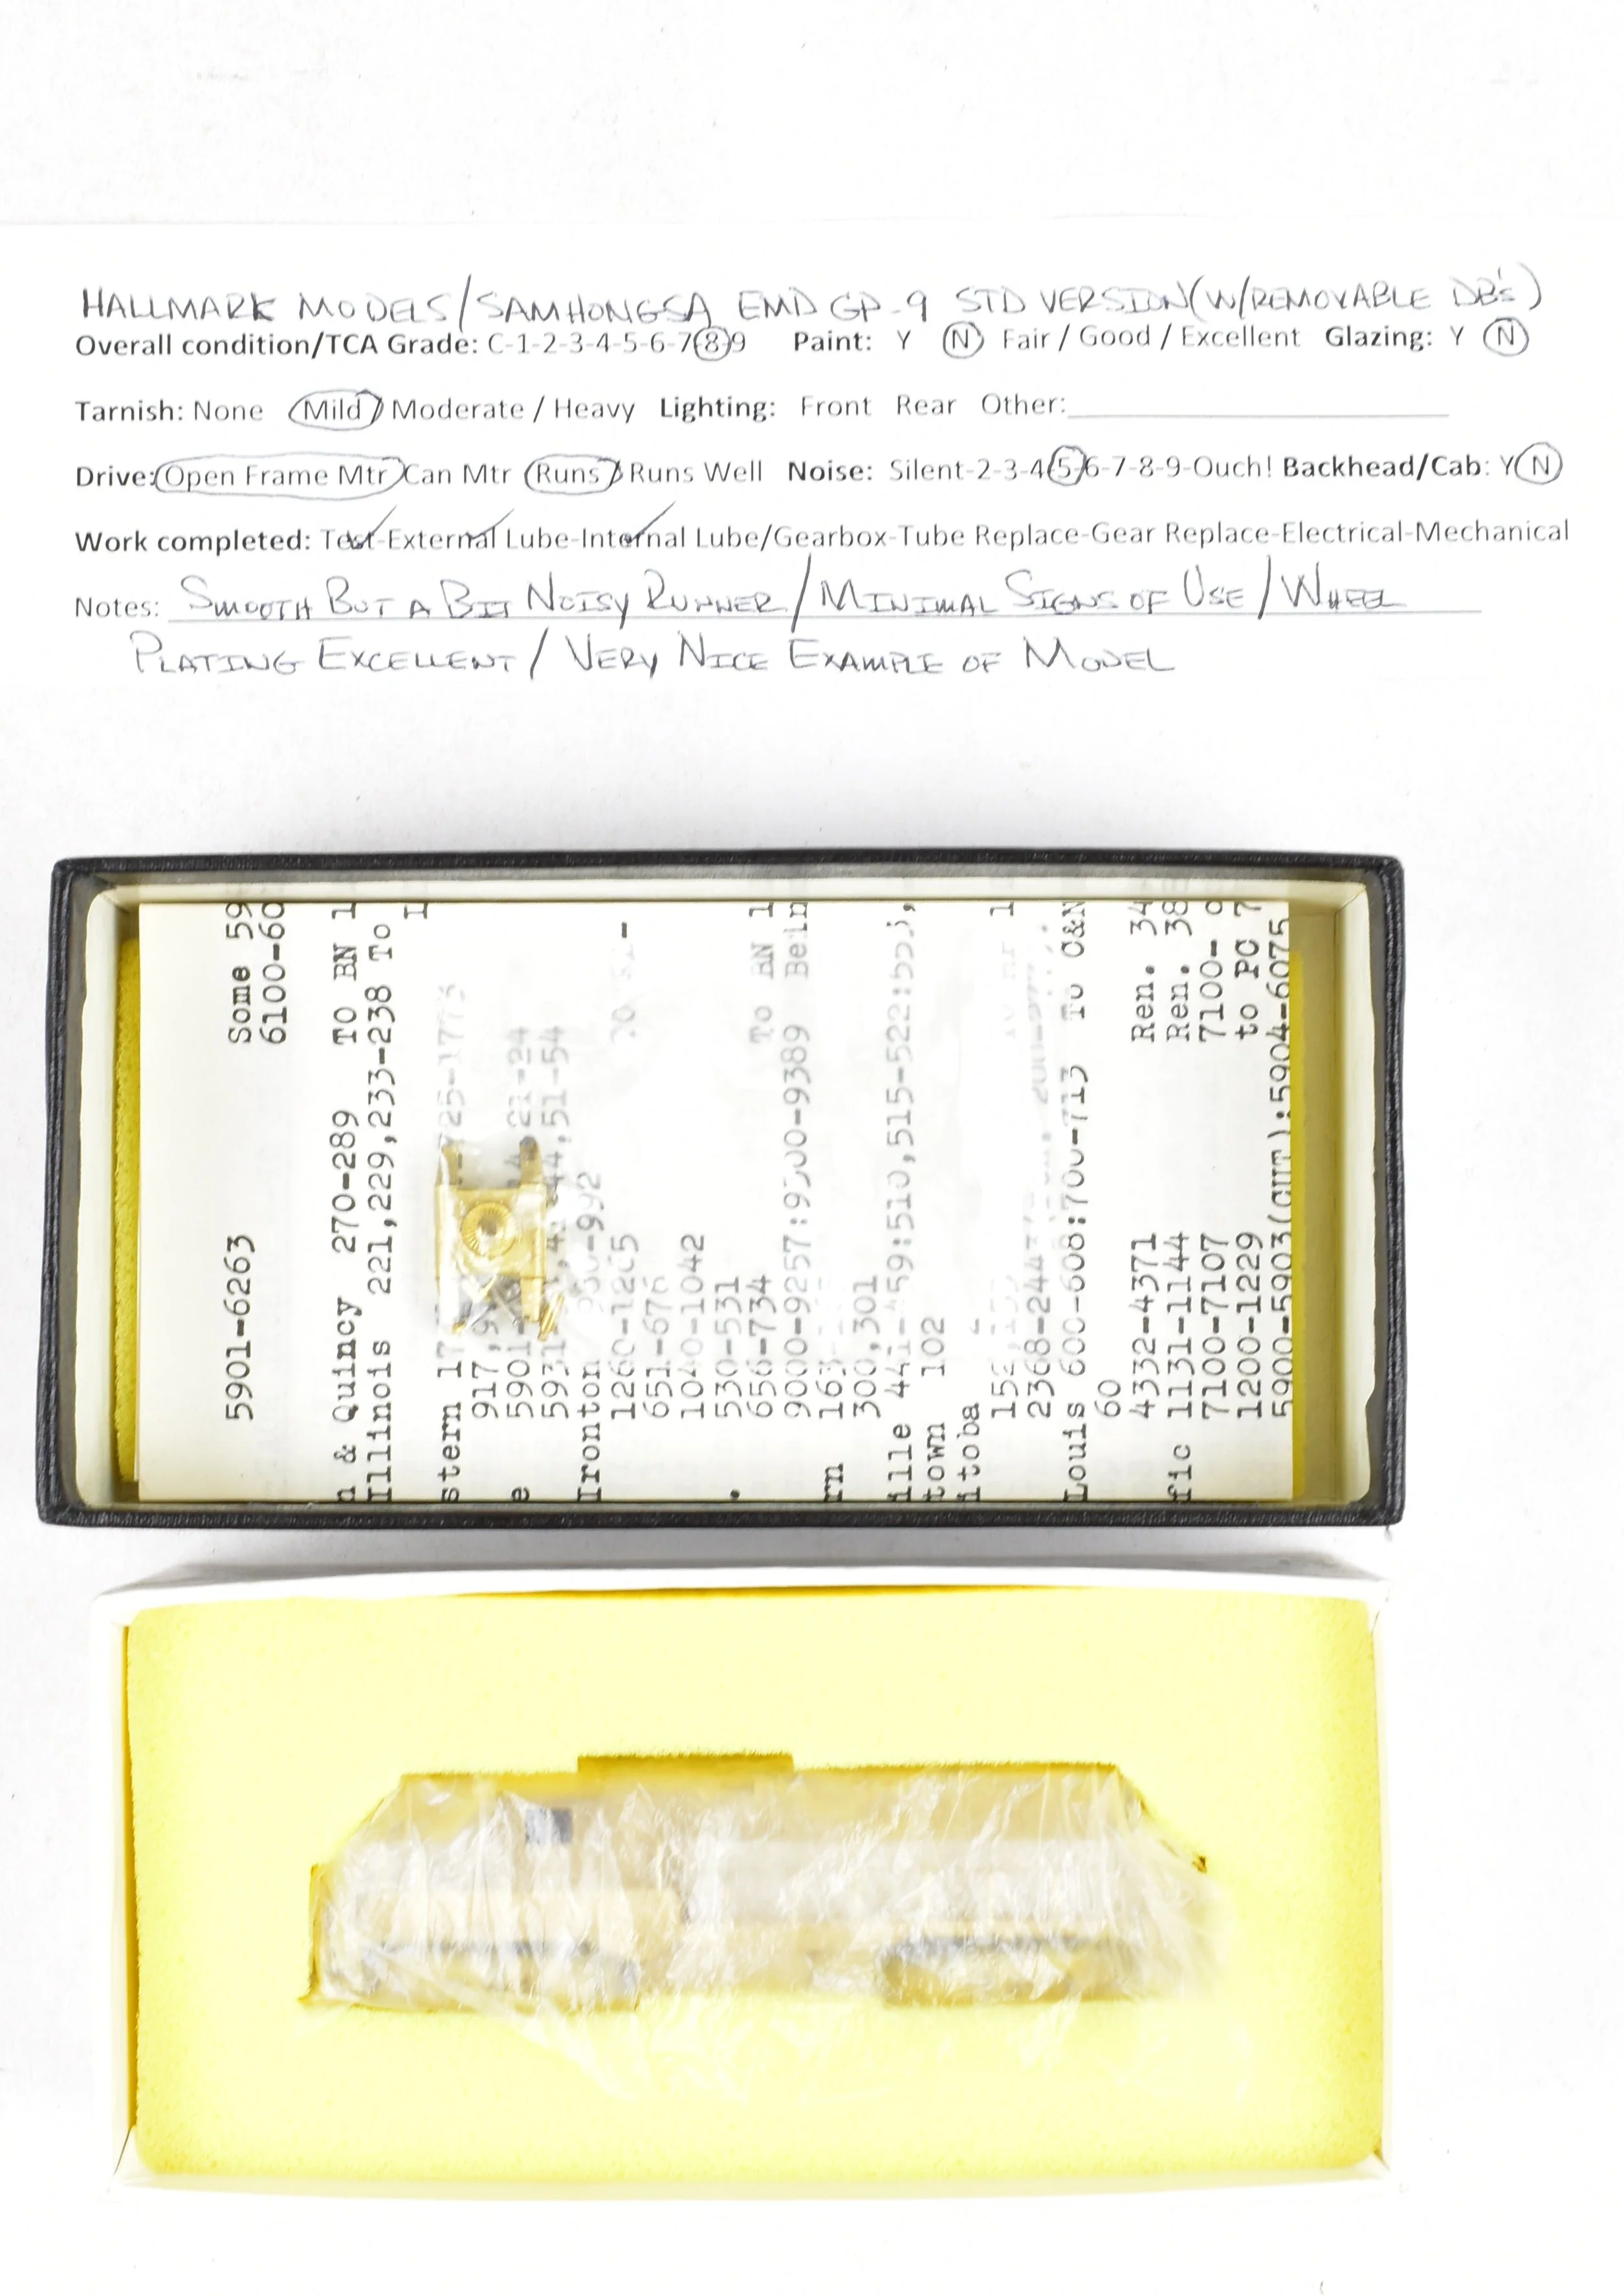 HALLMARK MODELS/SAMHONGSA EMD GP-9 STD VERSION(W/REMOVABLE DB's)
Overall condition/TCA Grade: C-1-2-3-4-5-6-7-8-9 Paint: Y N Fair / Good / Excellent Glazing: Y N
Tarnish: None Mild / Moderate / Heavy Lighting: Front Rear Other:
Drive: Open Frame Mtr / Can Mtr Runs / Runs Well Noise: Silent-2-3-4-5-6-7-8-9-Ouch! Backhead/Cab: Y N
Work completed: Test-External Lube-Internal Lube/Gearbox-Tube Replace-Gear Replace-Electrical-Mechanical
Notes: SMOOTH BUT A BIT NOISY RUNNER/MINIMAL SIGNS OF USE/WHEEL
PLATING EXCELLENT/VERY NICE EXAMPLE OF MODEL
5901-6263 Some 59
6100-60
n & Quincy 270-289 TO BN 1
Illinois 221,229,233-238 To I
stern 17 725-1775
917,
e 5901- 21-24
593 44,51-54
Ironton -992
1260-1265
651-676
1040-1042
530-531
656-734 To BN 1
9000-9257:9300-9389 Bein
rn 163
300,301
ille 441-459:510,515-522:
town 102
itoba
152,
2368-244
Louis 600-608:700-713 To C&N
60
4332-4371 Ren. 34
fic 1131-1144 Ren. 38
7100-7107 7100-
1200-1229 to PC 7
5900-5903(CUT):5904-6075